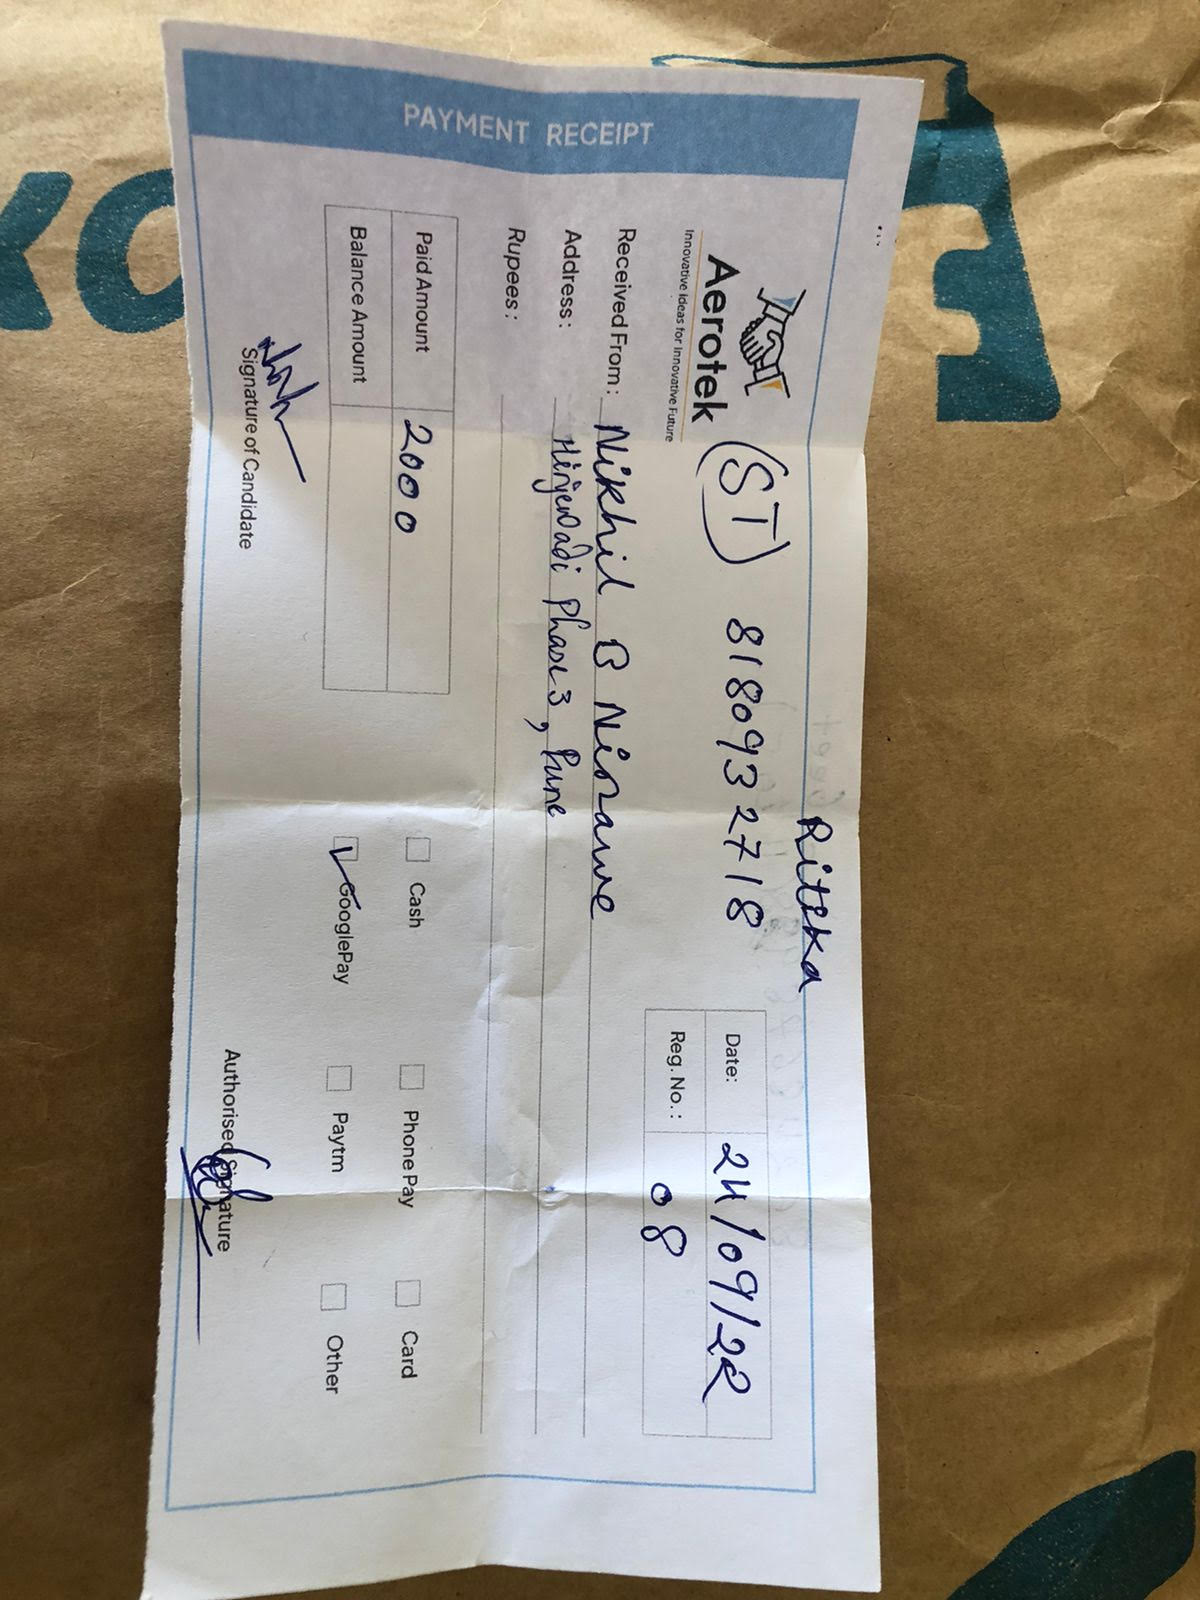 PAYMENT RECEIPT
Ritika
Aerotek
Innovative Ideas for Innovative Future
(ST) 8180932718
Date: 24/09/22
Reg. No.: 08
Received From: Nikhil B Nirawe
Address: Hinjewadi Phase 3, Pune
Rupees:
Paid Amount 2000
Balance Amount
Cash Phone Pay Card
GooglePay Paytm Other
Signature of Candidate
Authorised Signature